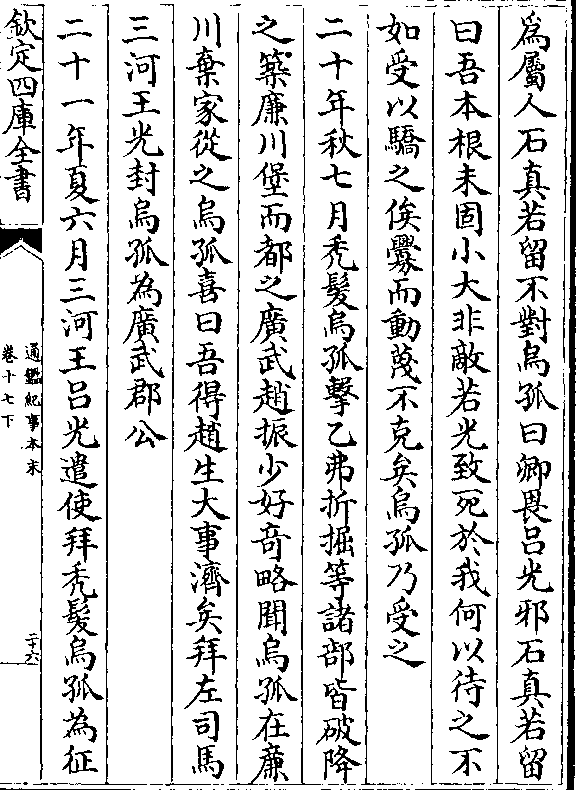 為屬人石真若留不對烏孤曰卿畏呂光邪石真若留
曰吾本根未固小大非敵若光致死於我何以待之不
如受以驕之俟釁而動蔑不克矣烏孤乃受之
二十年秋七月禿髮烏孤擊乙弗折掘等諸部皆破降
之築廉川堡而都之廣武趙振少好奇略聞烏孤在廉
川棄家從之烏孤喜曰吾得趙生大事濟矣拜左司馬
三河王光封烏孤為廣武郡公
二十一年夏六月三河王呂光遣使拜禿髮烏孤為征
欽定四庫全書
通鑑紀事本末
卷十七下
二十六